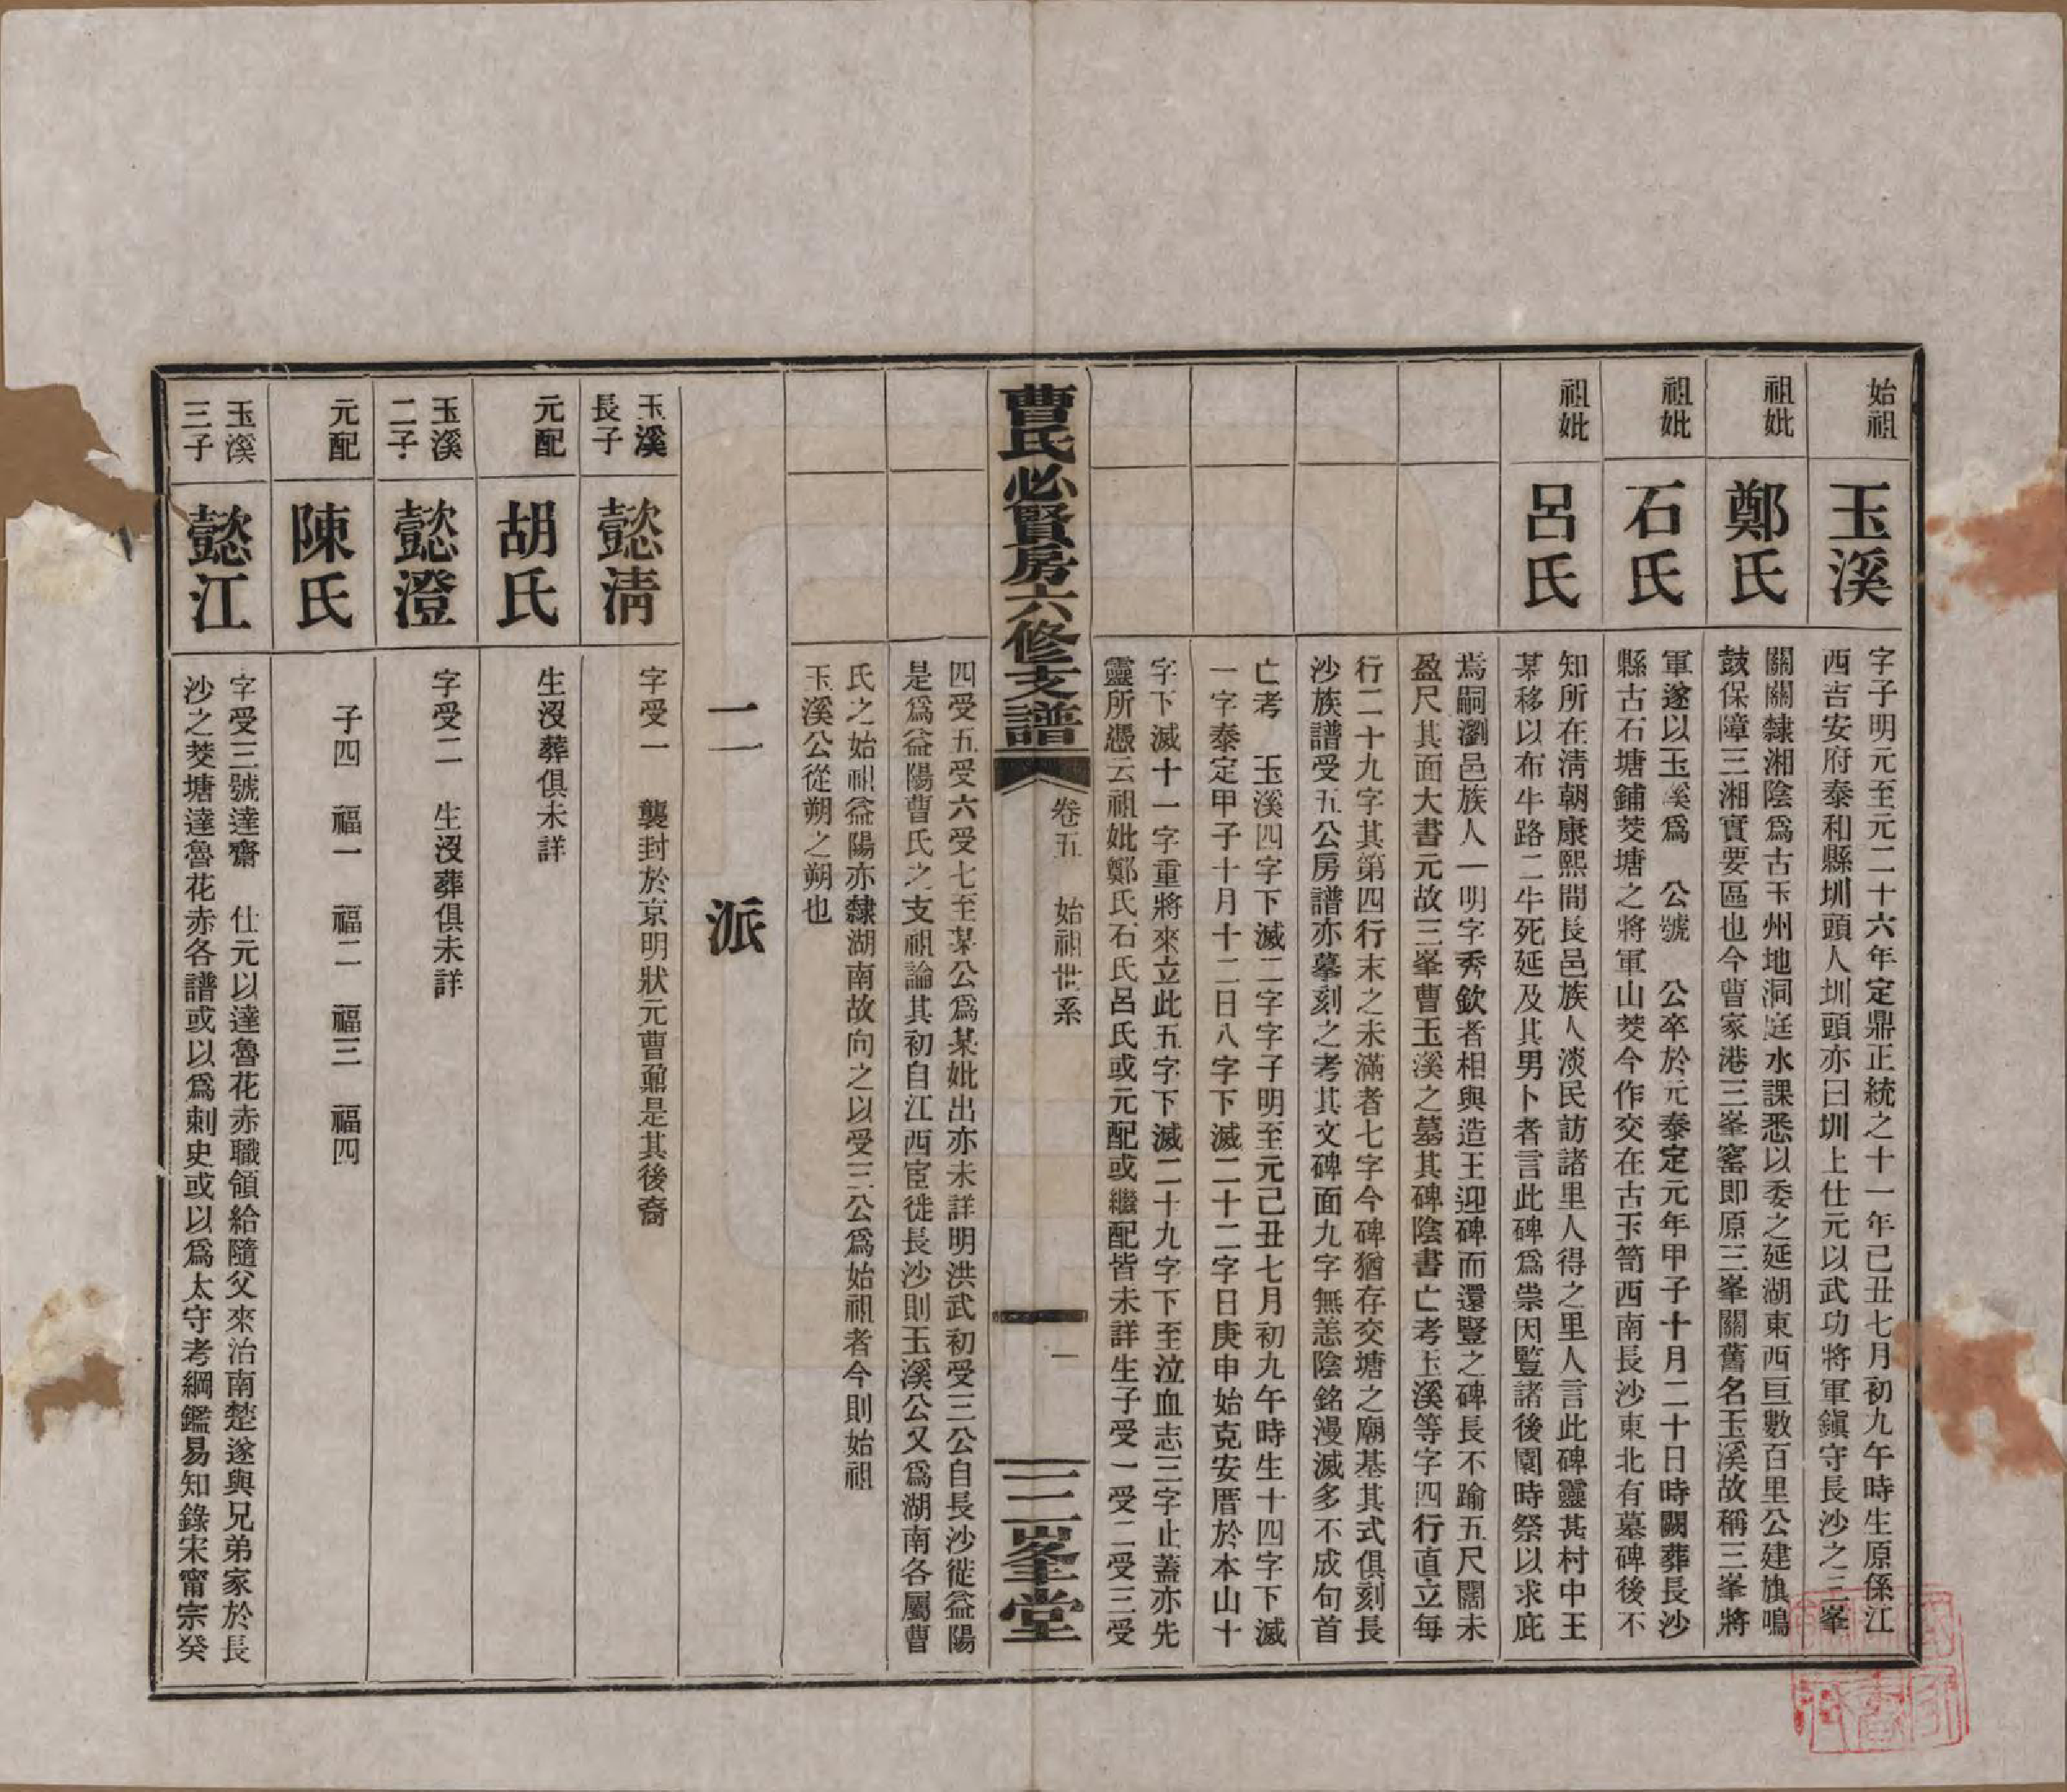 始祖
玉溪
字子明元至元二十六年定鼎正統之十一年已丑七月初九午時生原係江
西吉安府泰和縣圳頭人圳頭亦曰圳上仕元以武功將軍鎮守長沙之三峯
祖妣
鄭氏
關關隸湘陰爲古玉州地洞庭水課悉以委之延湖東西亘數百里公建旗鳴
鼓保障三湘實要區也今曹家港三峯窰即原三峯關舊名玉溪故稱三峯將
祖妣
石氏
軍遂以玉溪爲　公號　公卒於元泰定元年甲子十月二十日時闕葬長沙
縣古石塘鋪茭塘之將軍山茭今作交在古玉笥西南長沙東北有墓碑後不
祖妣
呂氏
知所在淸朝康熙間長邑族人淡民訪諸里人得之里人言此碑靈甚村中王
某移以布牛路二牛死延及其男卜者言此碑爲祟因豎諸後園時祭以求庇
焉嗣瀏邑族人一明字秀欽者相與造王迎碑而還豎之碑長不踰五尺闊未
盈尺其面大書元故三峯曹玉溪之墓其碑陰書亡考玉溪等字四行直立每
行二十九字其第四行末之未滿者七字今碑猶存交塘之廟基其式俱刻長
沙族譜受五公房譜亦摹刻之考其文碑面九字無恙陰銘漫滅多不成句首
亡考　玉溪四字下滅二字字子明至元己丑七月初九午時生十四字下滅
一字泰定甲子十月十二日八字下滅二十二字日庚申始克安厝於本山十
字下滅十一字重將來立此五字下滅二十九字下至泣血志三字止蓋亦先
靈所憑云祖妣鄭氏石氏呂氏或元配或繼配皆未詳生子受一受二受三受
曹氏必賢房六修支譜
卷五　始祖世系
一
三峯堂
四受五受六受七至某公爲某妣出亦未詳明洪武初受三公自長沙徙益陽
是爲益陽曹氏之支祖論其初自江西宦徙長沙則玉溪公又爲湖南各屬曹
氏之始祖益陽亦隸湖南故向之以受三公爲始祖者今則始祖
玉溪公從朔之朔也
二派
玉溪
長子
懿淸
字受一　襲封於京明狀元曹鼐是其後裔
元配
胡氏
生沒葬俱未詳
玉溪
二子
懿澄
字受二　生沒葬俱未詳
元配
陳氏
子四　福一　福二　福三　福四
玉溪
三子
懿江
字受三號達齋　仕元以達魯花赤職領給隨父來治南楚遂與兄弟家於長
沙之茭塘達魯花赤各譜或以爲刺史或以爲太守考綱鑑易知錄宋甯宗癸